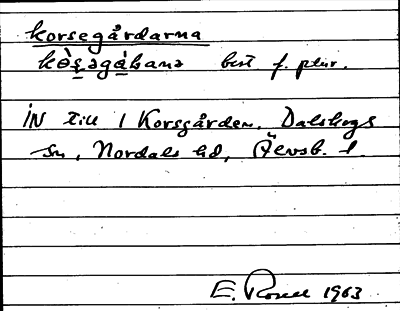 korsegårdarna
kɵ̀ṣəgàhanɜ best f. plur.
IN till 1 Korsgården. Dalskogs
sn, Nordals hd, Älvsb. l.
E. Rosell 1963